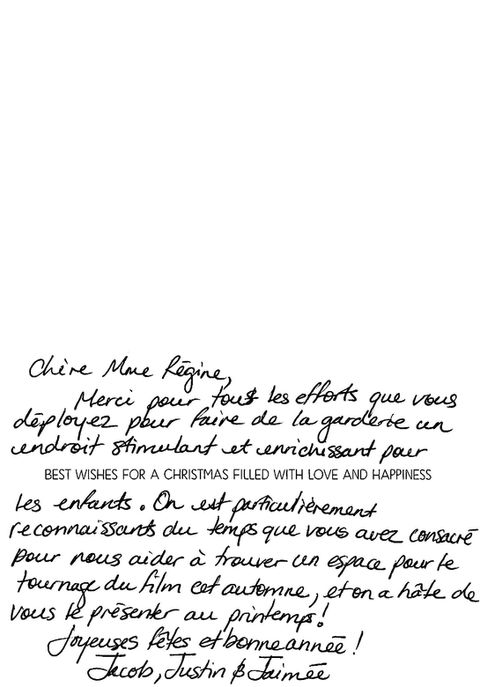 Chère Mme Régine,
Merci pour tous les efforts que vous
déployez pour faire de la garderie un
endroit stimulant et enrichissant pour
BEST WISHES FOR A CHRISTMAS FILLED WITH LOVE AND HAPPINESS
les enfants. On est particulièrement
reconnaissants du temps que vous avez consacré
pour nous aider à trouver un espace pour le
tournage du film cet automne, et on a hâte de
vous le présenter au printemps!
Joyeuses fêtes et bonne année!
Jacob, Justin & Jaimée